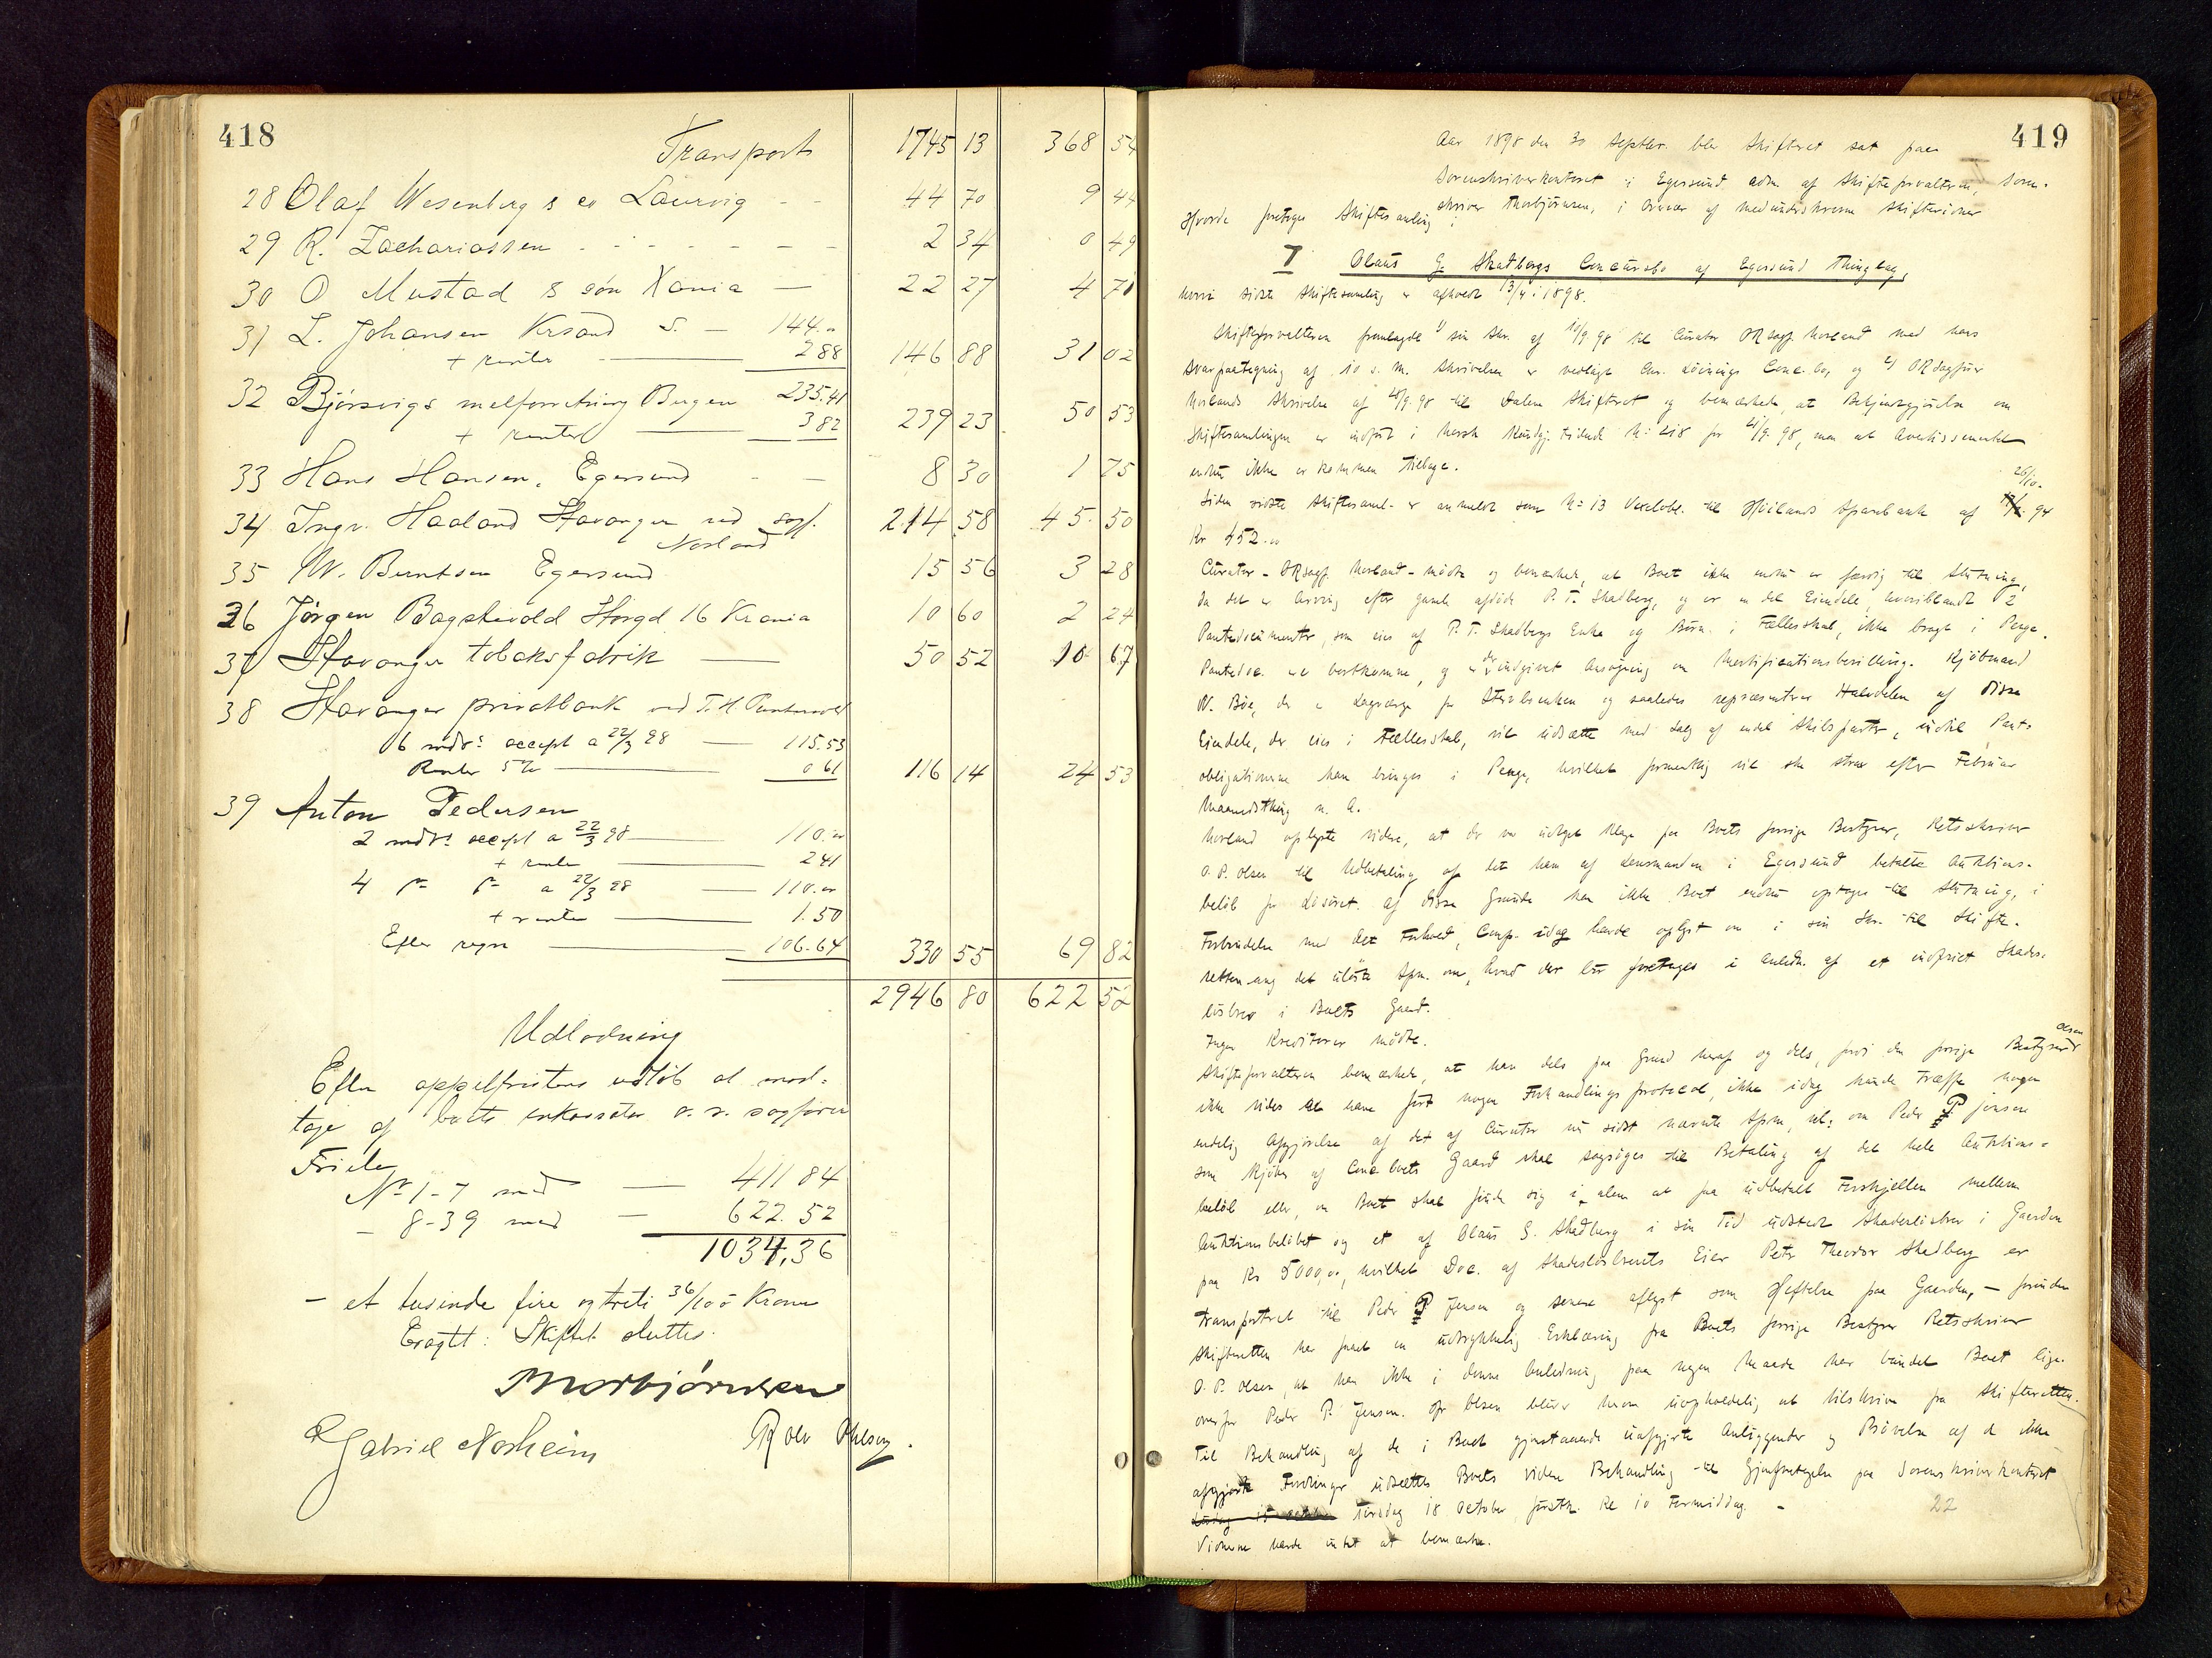 418
Transport 1745 13 368 54
28 Olaf Wesenberg & co Laurvig - - 44 70 9 44
29 R. Zachariassen - - - - - - 2 34 0 49
30 O Mustad & søn Xania — 22 27 4 71
31 L. Johansen Krsand S. — 144.00
+ renter — 2 88 146 88 31 02
32 Bjørsvigs melforretning Bergen 235.41
+ renter — 3 82 239 23 50 53
33 Hans Hansen, Egersund - — 8 30 1 75
34 Ingv. Haaland Stavanger ved sagf. 214 58 45 50
Norland
35 W. Berntsen Egersund 15 56 3 28
36 Jørgen Bagstevold Storgd 16 Krania 10 60 2 24
37 Stavanger tobaksfabrik — 50 52 10 67
38 Stavanger privatbank ved T. H.
6 mdrs accept a 22/3 98 — 115.53
Renter 5% — 0 61 116 14 24 53
39 Anton Pedersen
2 mdrs accept a 22/3 98 — 110.00
+ renter — 2 41
4 a 22/3 98 — 110.00
+ renter — 1.50
Efter regn — 106.64 330 55 69 82
2946 80 622 52
Udlodning
Efter appelfristens udløb at mod=
tage af boets inkassator o. r. sagfører
Friele
No 1-7 med — 411 84
- 8-39 med — 622.52
1034,36
— et tusinde fire og treti 36/100 Kroner
Eragtt: Skiftet sluttes.
Thorbjørnsen
Gabriel Norheim Rolv Ohlsen.
419
Aar 1898 den 30 Septbr. blev Skifteret sat paa
Sorenskriverkontoret i Egersund adm. af Skifteforvalteren, Soren-
skriver Thorbjörnsen, i Overvær af medunderskrevne Skiftevidner
Hvorda foretoges Skiftesamling i
I Olaus G. Skadbergs Concursbo af Egersund Thinglag,
hvori sidste Skiftesamling er afholdt 13/4 i 1898.
Skifteforvalteren fremlagde 1) sin Skr. af 10/9 98 til Curator ORsagf. Norland med hans
Svarpaategning af 10 s. M. Skrivelsen er vedlagt Conc. bo, og 2) ORSagfører
Norlands Skrivelse af /9. 98 til Dalene Skifteret og bemærkede, at Bekjendtgjörelse om
Skiftesamlingen er indført i Norsk Kundgj. tidende N: 218 for /9. 98, men at Avertissementet
endnu ikke er kommen tilbage.
Siden sidste Skiftesaml. er anmeldt som N: 13 Vexelobl. til Sparebank af 26/10. 94
Kr 452.00
Curator - ORsagf. Norland - mödte og bemærkede, at Boet ikke endnu er færdig til Slutning,
da det er Arving efter gamle afdöde P. T. Skadberg, og er en del Eiendele, hvoriblandt 2
Pantedokumenter, som eies af P. T. Skadbergs Enke og Börn i Fællesskab, ikke bragt i Penge.
Pantedoc. ere bortkomne, og er der indgivet Ansøgning om Mortificationsbevilling. Kjöbmand
W. Böe, der er Lagværge for Sterbenken og saaledes repræsenterer Halvdelen af disse
Eiendele, der eies i Fællesskab, vil udsætte med Salg af endel Skilsparter, indtil Pant-
obligationerne kan bringes i Penge, hvilket formentlig vil ske strax efter Februar
Maanedsthing n. A.
Norland oplyste videre, at der var udtaget Klage paa Boets forrige Bestyrer, Retsskriver
O. P. Olsen til Udbetaling af det ham af Lensmanden i Egersund betalte Auktions-
belöb for Lösöret. Af disse Grunde kan ikke Boet endnu optages til Slutning, i
Forbindelse med det Forhold, Comp. idag havde oplyst om i sin Skr. til Skifte-
retten ang. det ulöste Spm. om, hvad der bör foretages i Anledn. af et indfriet Skades-
lösbrev i Boets Gaard.
Ingen Kreditorer mödte.
Skifteforvalteren bemærkede, at han dels paa Grund heraf og dels, fordi den forrige Bestyrer Olsen
ikke vides at have fört nogen Forhandlingsprotocol, ikke idag kunde træffe nogen
endelig Afgjörelse af det af Curator nu sidst nævnte Spm, nl: om Peder P. Jensen
som Kjöber af Conc. boets Gaard skal sagsöges til Betaling af det hele Auktions-
belöb eller, om Boet skal finde sig i alene at faa udbetalt Forskjellen mellem
Auktionsbelöbet og et af Olaus G. Skadberg i sin Tid udstedt Skadeslösbrev i Gaarden
paa Kr 5000,00, hvilket Doc. af Skadeslösbrevets Eier Peter Theodor Skadberg er
transporteret til Peder P Jensen og senere aflyst som Heftelse paa Gaarden, - forinden
Skifteretten har faaet en udtrykkelig Erklæring fra Boets forrige Bestyrer Retsskriver
O. P. Olsen, at han ikke i denne Anledning paa nogen Maade har bundet Boet lige-
overfor Peder P. Jensen. Hr Olsen bliver herom uopholdelig at tilskrive fra Skifteretten.
Til Behandling af de i Boet gjenstaaende uafgjorte Anliggender og Prövelse af de ikke
afgjorte Fordringer udsættes Boets videre Behandling til Gjenforetagelse paa Sorenskriverkontoret
Tirsdag 18 October förstk. Kl 10 Formiddag. -
22
Vidnerne havde intet at bemærke.